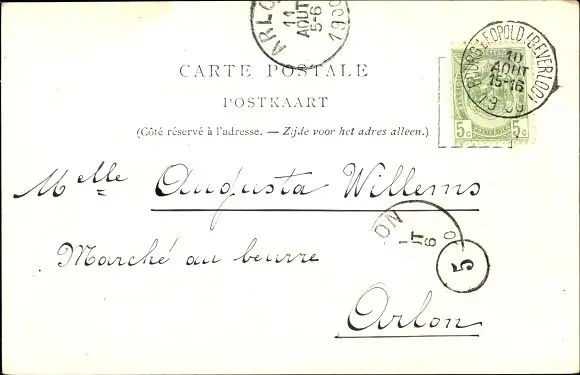 ARLO
11
AOUT
5-6
1900
BOURG-LEOPOLD (BEVERLOO)
10
AOUT
15-16
1900
CARTE POSTALE
POSTKAART
(Côté réservé à l'adresse. — Zijde voor het adres alleen.)
5c 5c
Melle Augusta Willems
ON
UT
6
0
5
Marché au beurre
Arlon